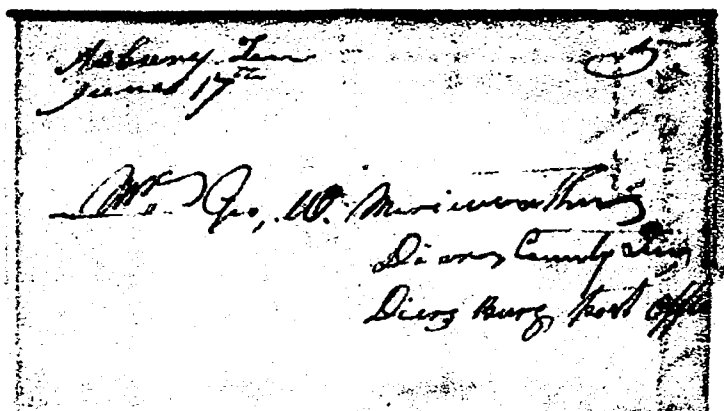 Asbury Ten
June 17th
5
Mr. Geo, W. Meriweather
Diers County Ten
Diers Burg Post Office